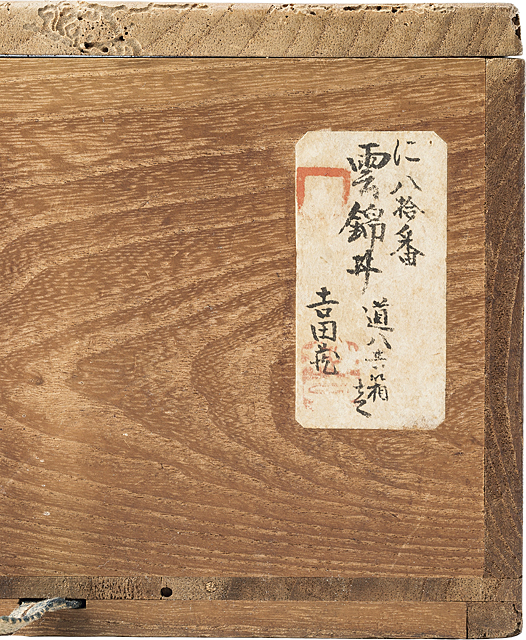 に八拾番
雲錦丼
道八共箱
吉田蔵